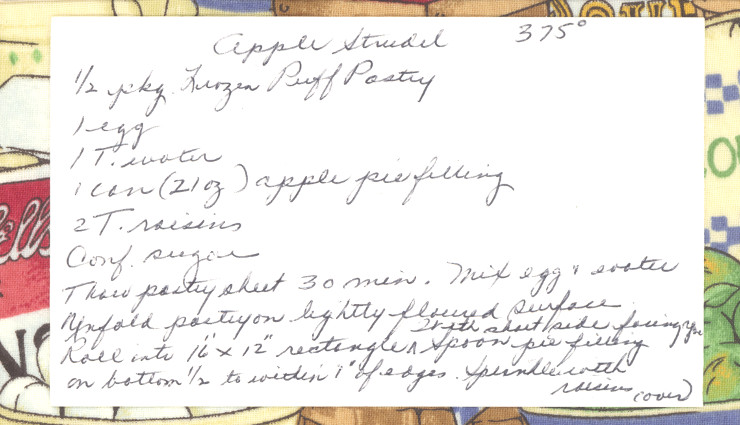 Apple Strudel 375°
1/2 pkg. Frozen Puff Pastry
1 egg
1 T. water
1 can (21 oz) apple pie filling
2 T. raisins
Conf. sugar
Thaw pastry sheet 30 min. Mix egg & water
Unfold pastry on lightly floured surface
Roll into 16" x 12" rectangle ^ spoon pie filling
with short side facing you
on bottom 1/2 to within 1" of edges. Sprinkle with
raisins (over)